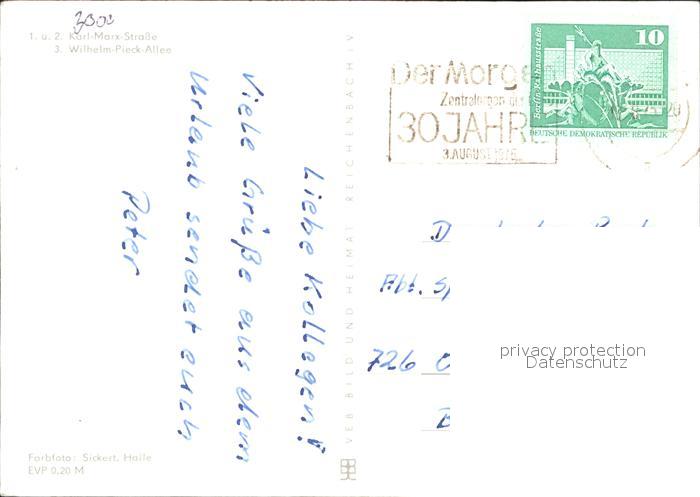 3000
1. u. 2. Karl-Marx-Straße
3. Wilhelm-Pieck-Allee
Liebe Kollegen!
Viele Grüße aus dem
Urlaub sendet euch
Peter
Farbfoto: Sickert, Halle
EVP 0,20 M
VEB BILD UND HEIMAT REICHENBACH I V
Der Morgen
Zentralorgan der
30 JAHRE
3. AUGUST 1975
Berlin, Rathausstraße
10
DEUTSCHE DEMOKRATISCHE REPUBLIK
20
D
Abt.
726
privacy protection
Datenschutz